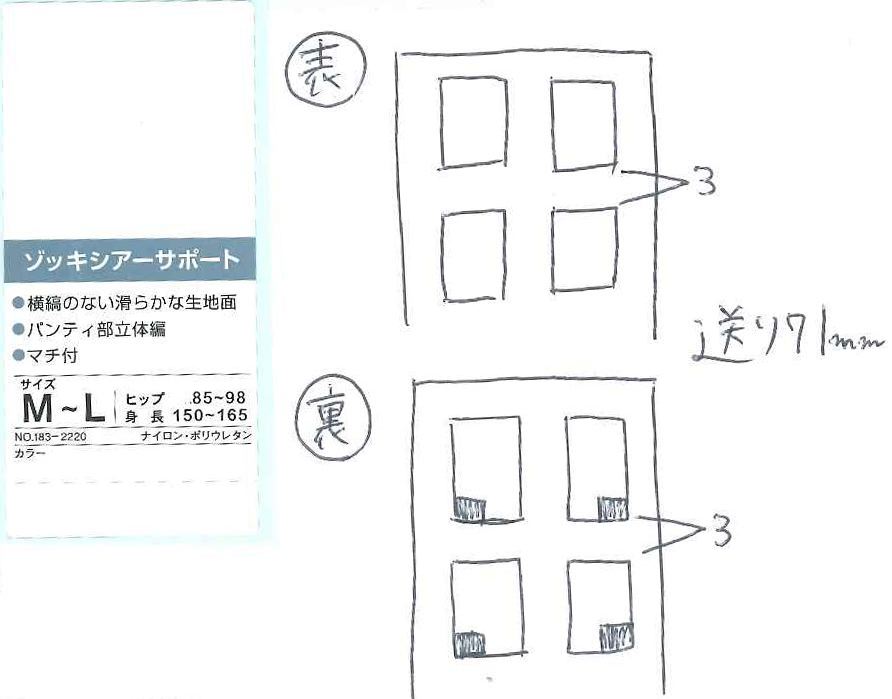 ゾッキシアーサポート
●横縞のない滑らかな生地面
●パンティ部立体編
●マチ付
サイズ
M~L
ヒップ 85~98
身長 150~165
NO.183-2220 ナイロン・ポリウレタン
カラー
表
3
送り71mm
裏
3